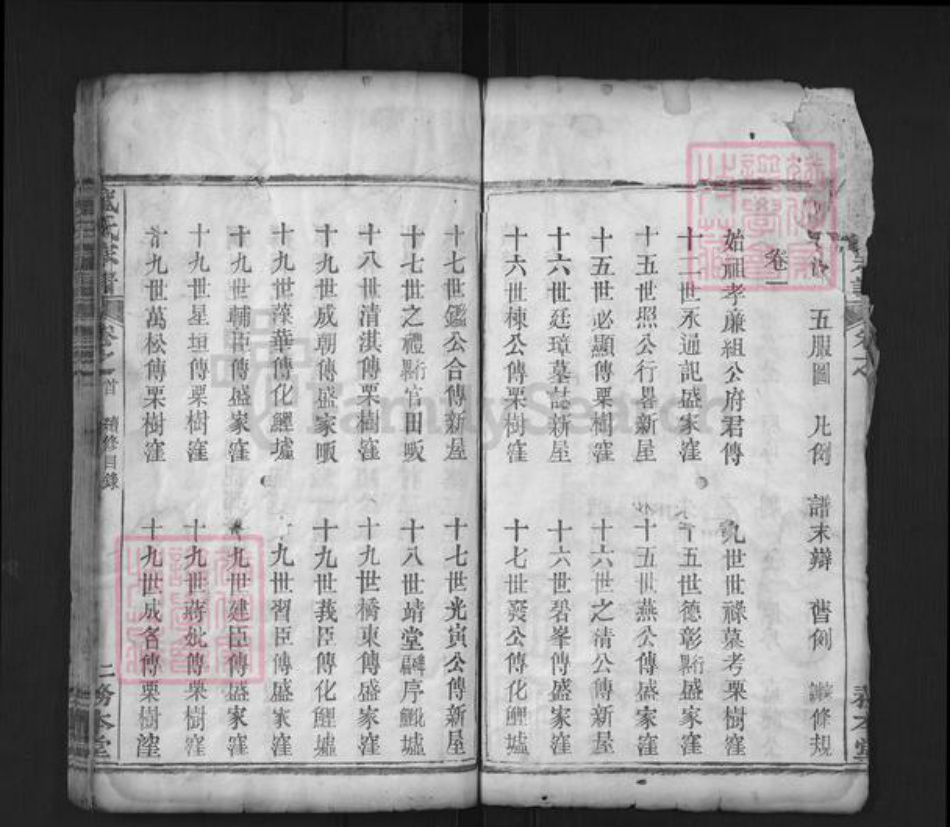 五服圖 凡例 譜末辯 舊例 條規
卷一
始祖孝廉組公府君傳 九世世祿墓考栗樹窪
十二世永通記盛家窪 十五世德彰行畧盛家窪
十五世照公行畧新屋 十五世燕公傳盛家窪
十五世必顯傳栗樹窪 十六世之清公傳新屋
十六世廷璋墓誌新屋 十六世碧峯傳盛家窪
十六世棟公傳栗樹窪 十七世發公傳化鯉墟
十七世鑑公合傳新屋 十七世光寅公傳新屋
十七世之禮行畧官田畈 十八世靖堂序化鯉墟
十八世清淇傳栗樹窪 十九世橋東傳盛家窪
十九世成朝傳盛家畈 十九世莪臣傳化鯉墟
十九世藻華傳化鯉墟 十九世習臣傳盛家窪
十九世輔臣傳盛家窪 十九世建臣傳盛家窪
十九世星垣傳栗樹窪 十九世蔣妣傳栗樹窪
十九世萬松傳栗樹窪 十九世成名傳栗樹窪
氏家譜 卷之首 續修目錄 二 務本堂
FamilySearch